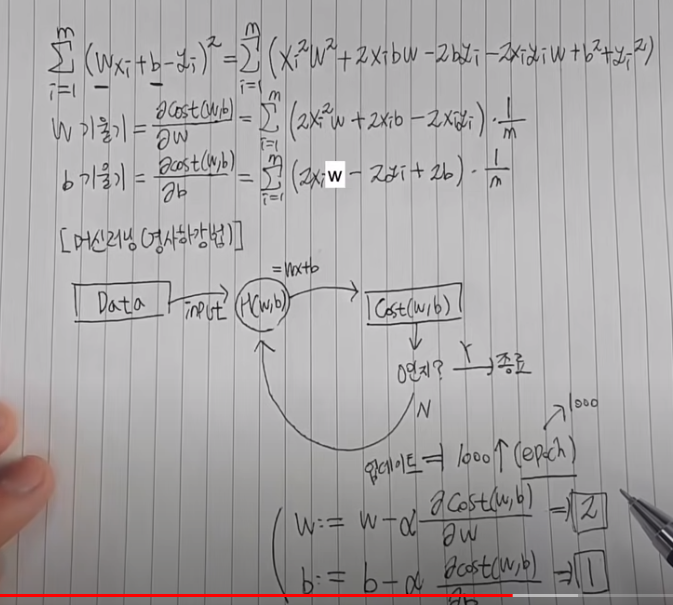 m m
∑ (wxi+b-yi)² = ∑ (xi²w²+2xibw-2byi-2xiyiw+b²+yi²)
i=1 i=1
w 기울기 = ∂cost(w,b)/∂w = ∑ (2xi²w+2xib-2xiyi)·1/m
b 기울기 = ∂cost(w,b)/∂b = ∑ (2xiw-2yi+2b)·1/m
[머신러닝(경사하강법)]
=wx+b
Data input H(w,b) Cost(w,b)
0인지? Y 종료
N
1000
업데이트 ⇒ 1000↑(epoch)
w:= w-α ∂cost(w,b)/∂w ⇒ 2
b:= b-α ∂cost(w,b)/∂b ⇒ 1